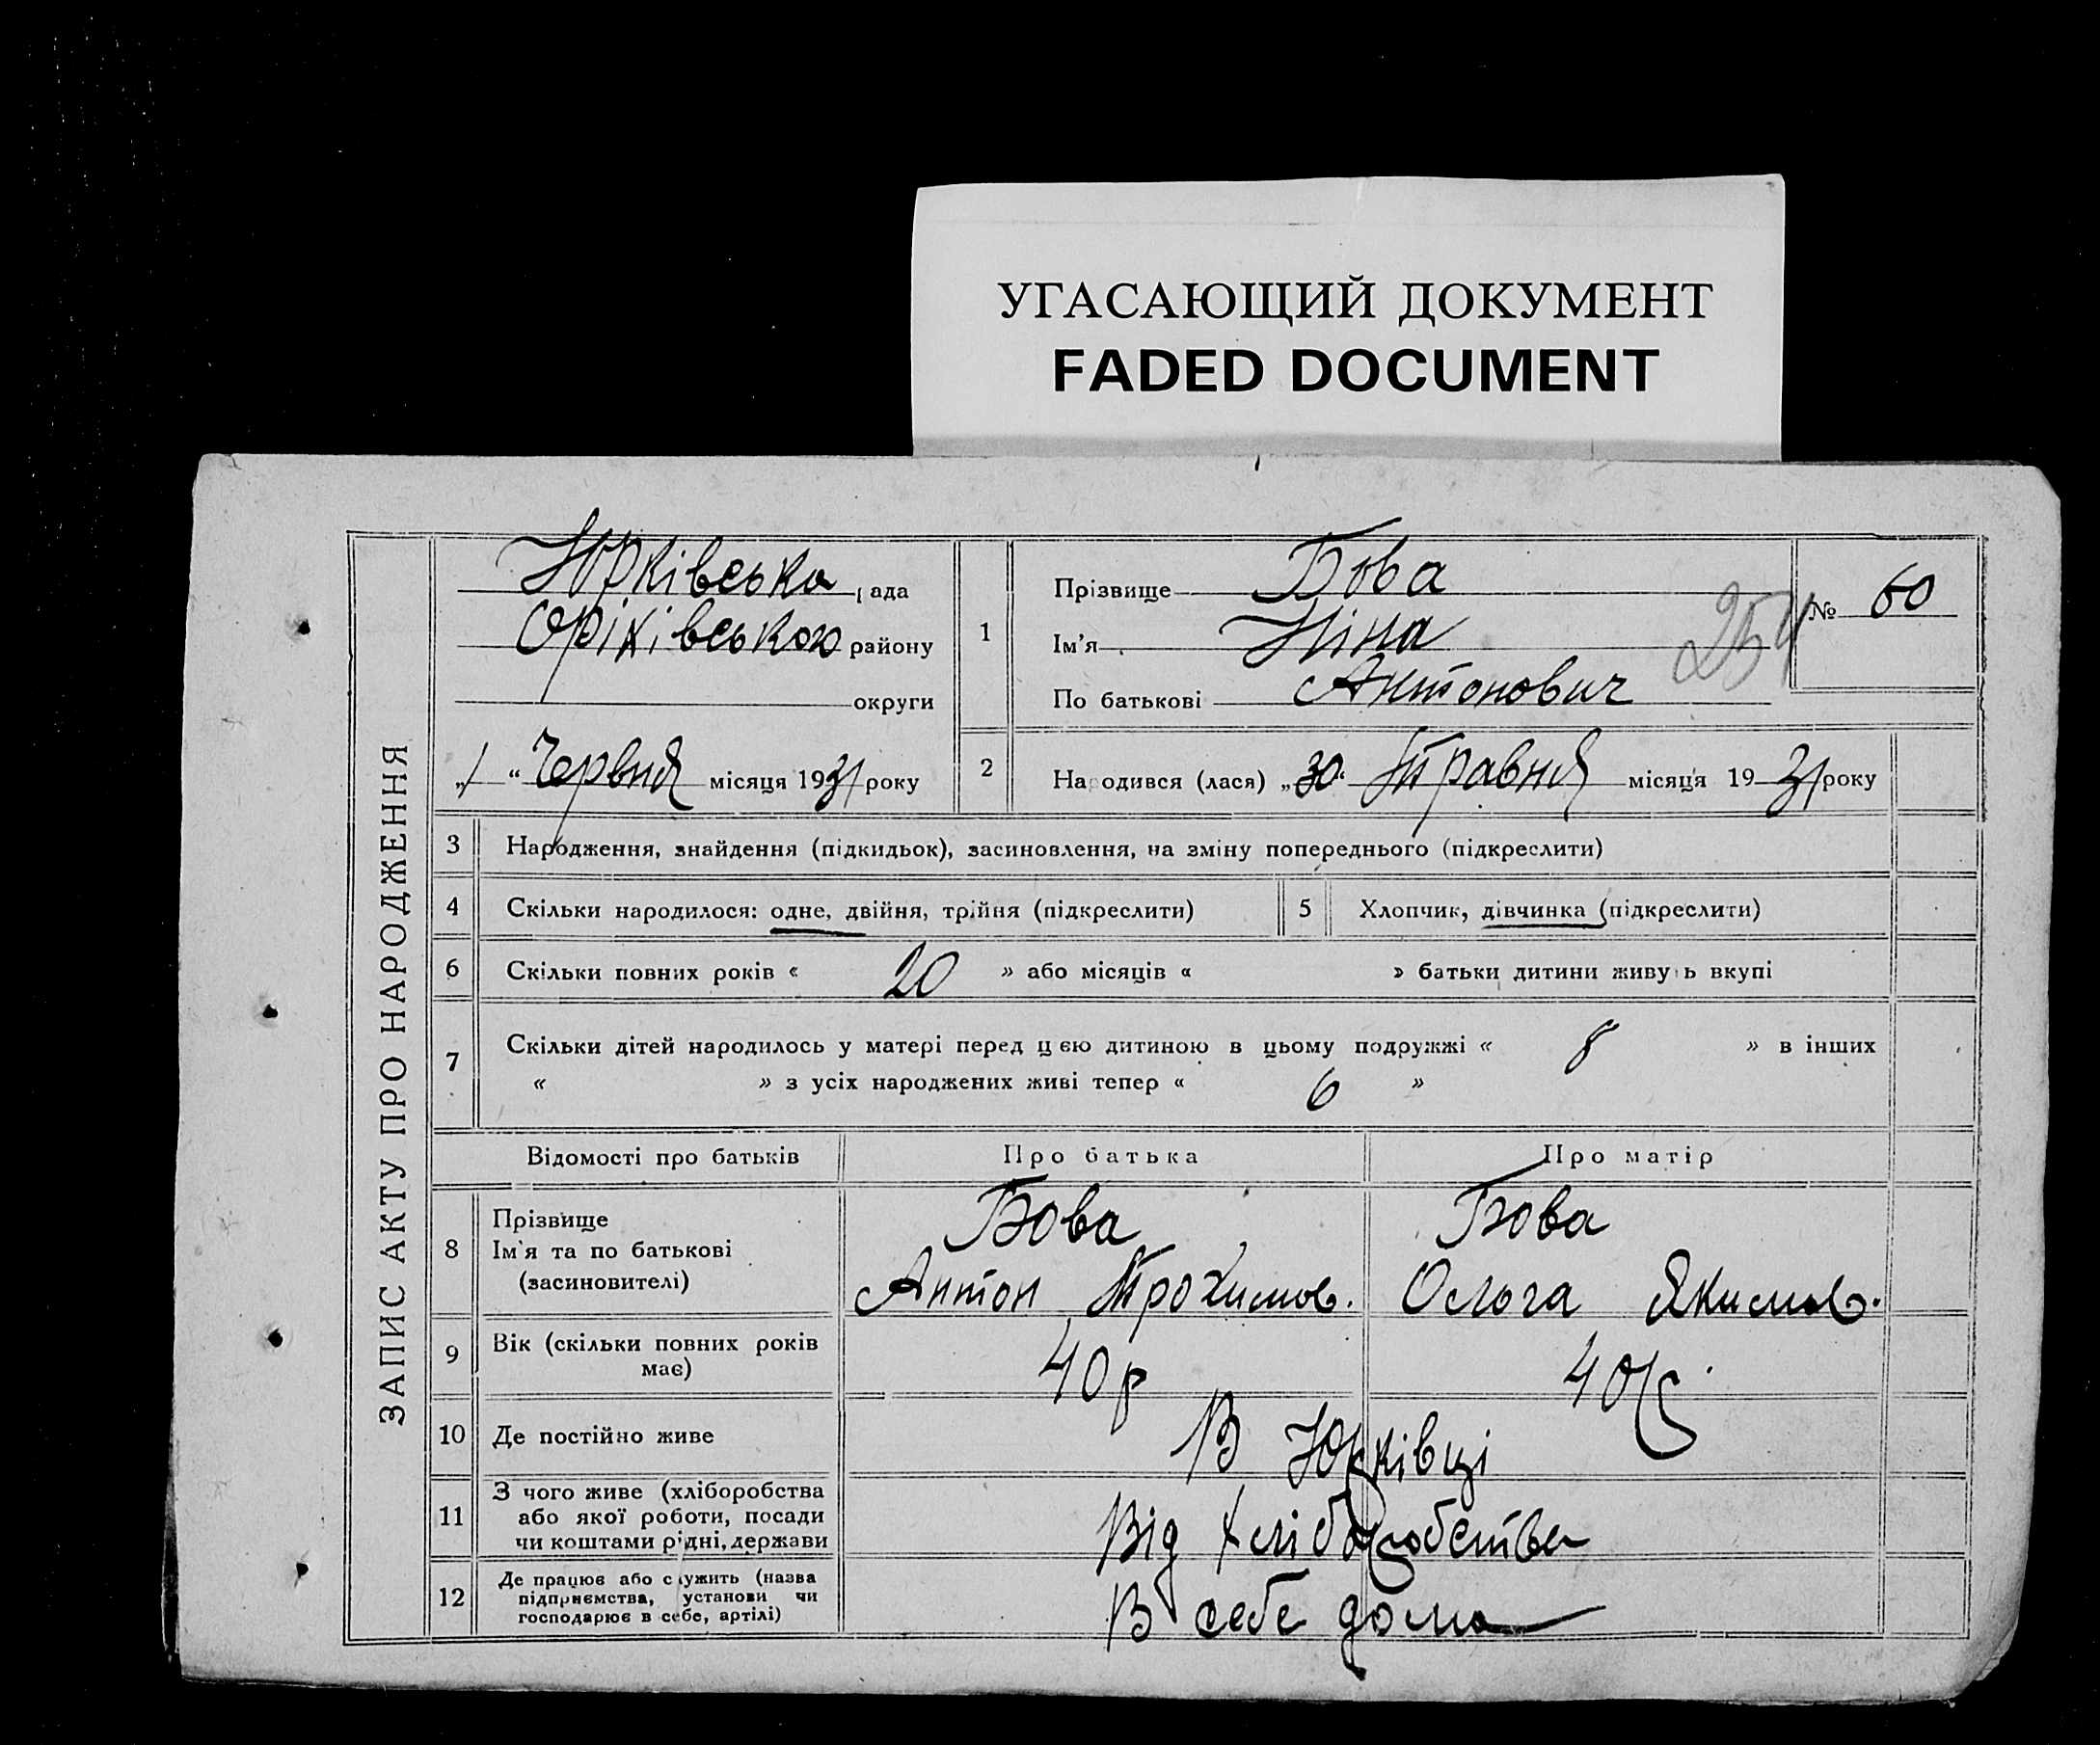 УГАСАЮЩИЙ ДОКУМЕНТ
FADED DOCUMENT
ЗАПИС АКТУ ПРО НАРОДЖЕННЯ
Юрківська рада
Оріхівського району
округи
„1“ Червня місяця 1931 року
1
Прізвище Бова
Ім'я Ніна
По батькові Антонович
№ 60
254
2
Народився (лася) „30“ Травня місяця 1931 року
3 Народження, знайдення (підкидьок), засиновлення, на зміну попереднього (підкреслити)
4 Скільки народилося: одне, двійня, трійня (підкреслити) 5 Хлопчик, дівчинка (підкреслити)
6 Скільки повних років « 20 » або місяців « » батьки дитини живуть вкупі
7 Скільки дітей народилось у матері перед цєю дитиною в цьому подружжі « 8 » в інших
« » з усіх народжених живі тепер « 6 »
Відомості про батьків Про батька Про матір
8 Прізвище Бова Бова
Ім'я та по батькові
(засиновителі) Антон Трохимов. Ольога Якимов.
9 Вік (скільки повних років має) 40 р 40 р.
10 Де постійно живе В Юрківці
11 З чого живе (хліборобства
або якої роботи, посади
чи коштами рідні, держави Від хліборобства
12 Де працює або служить (назва
підприємства, установи чи
господарює в себе, артілі) В себе дома